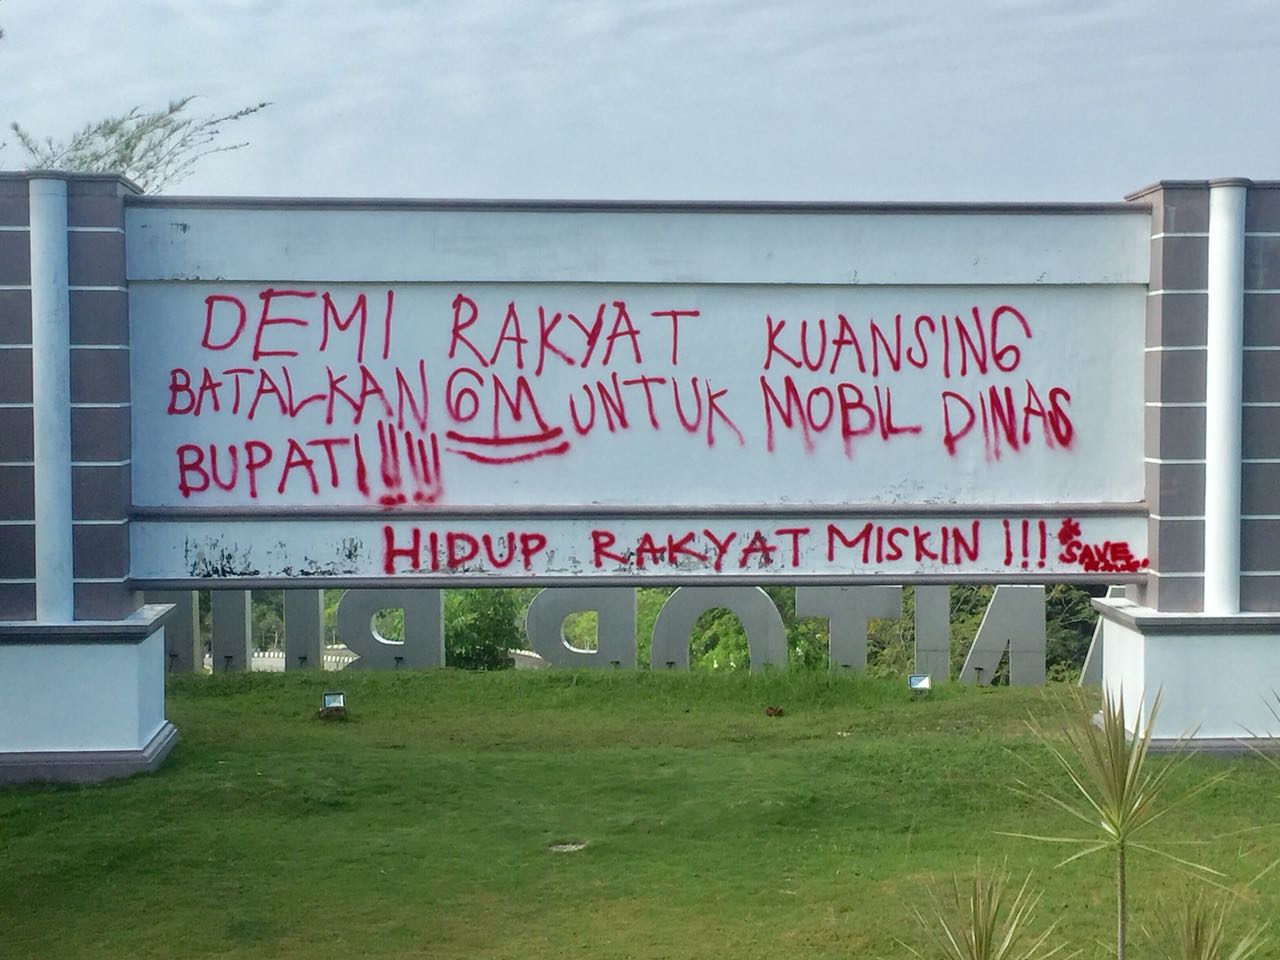 DEMI RAKYAT KUANSING
BATALKAN 6M UNTUK MOBIL DINAS
BUPATI!!!!!
HIDUP RAKYAT MISKIN !!!
*SAVE